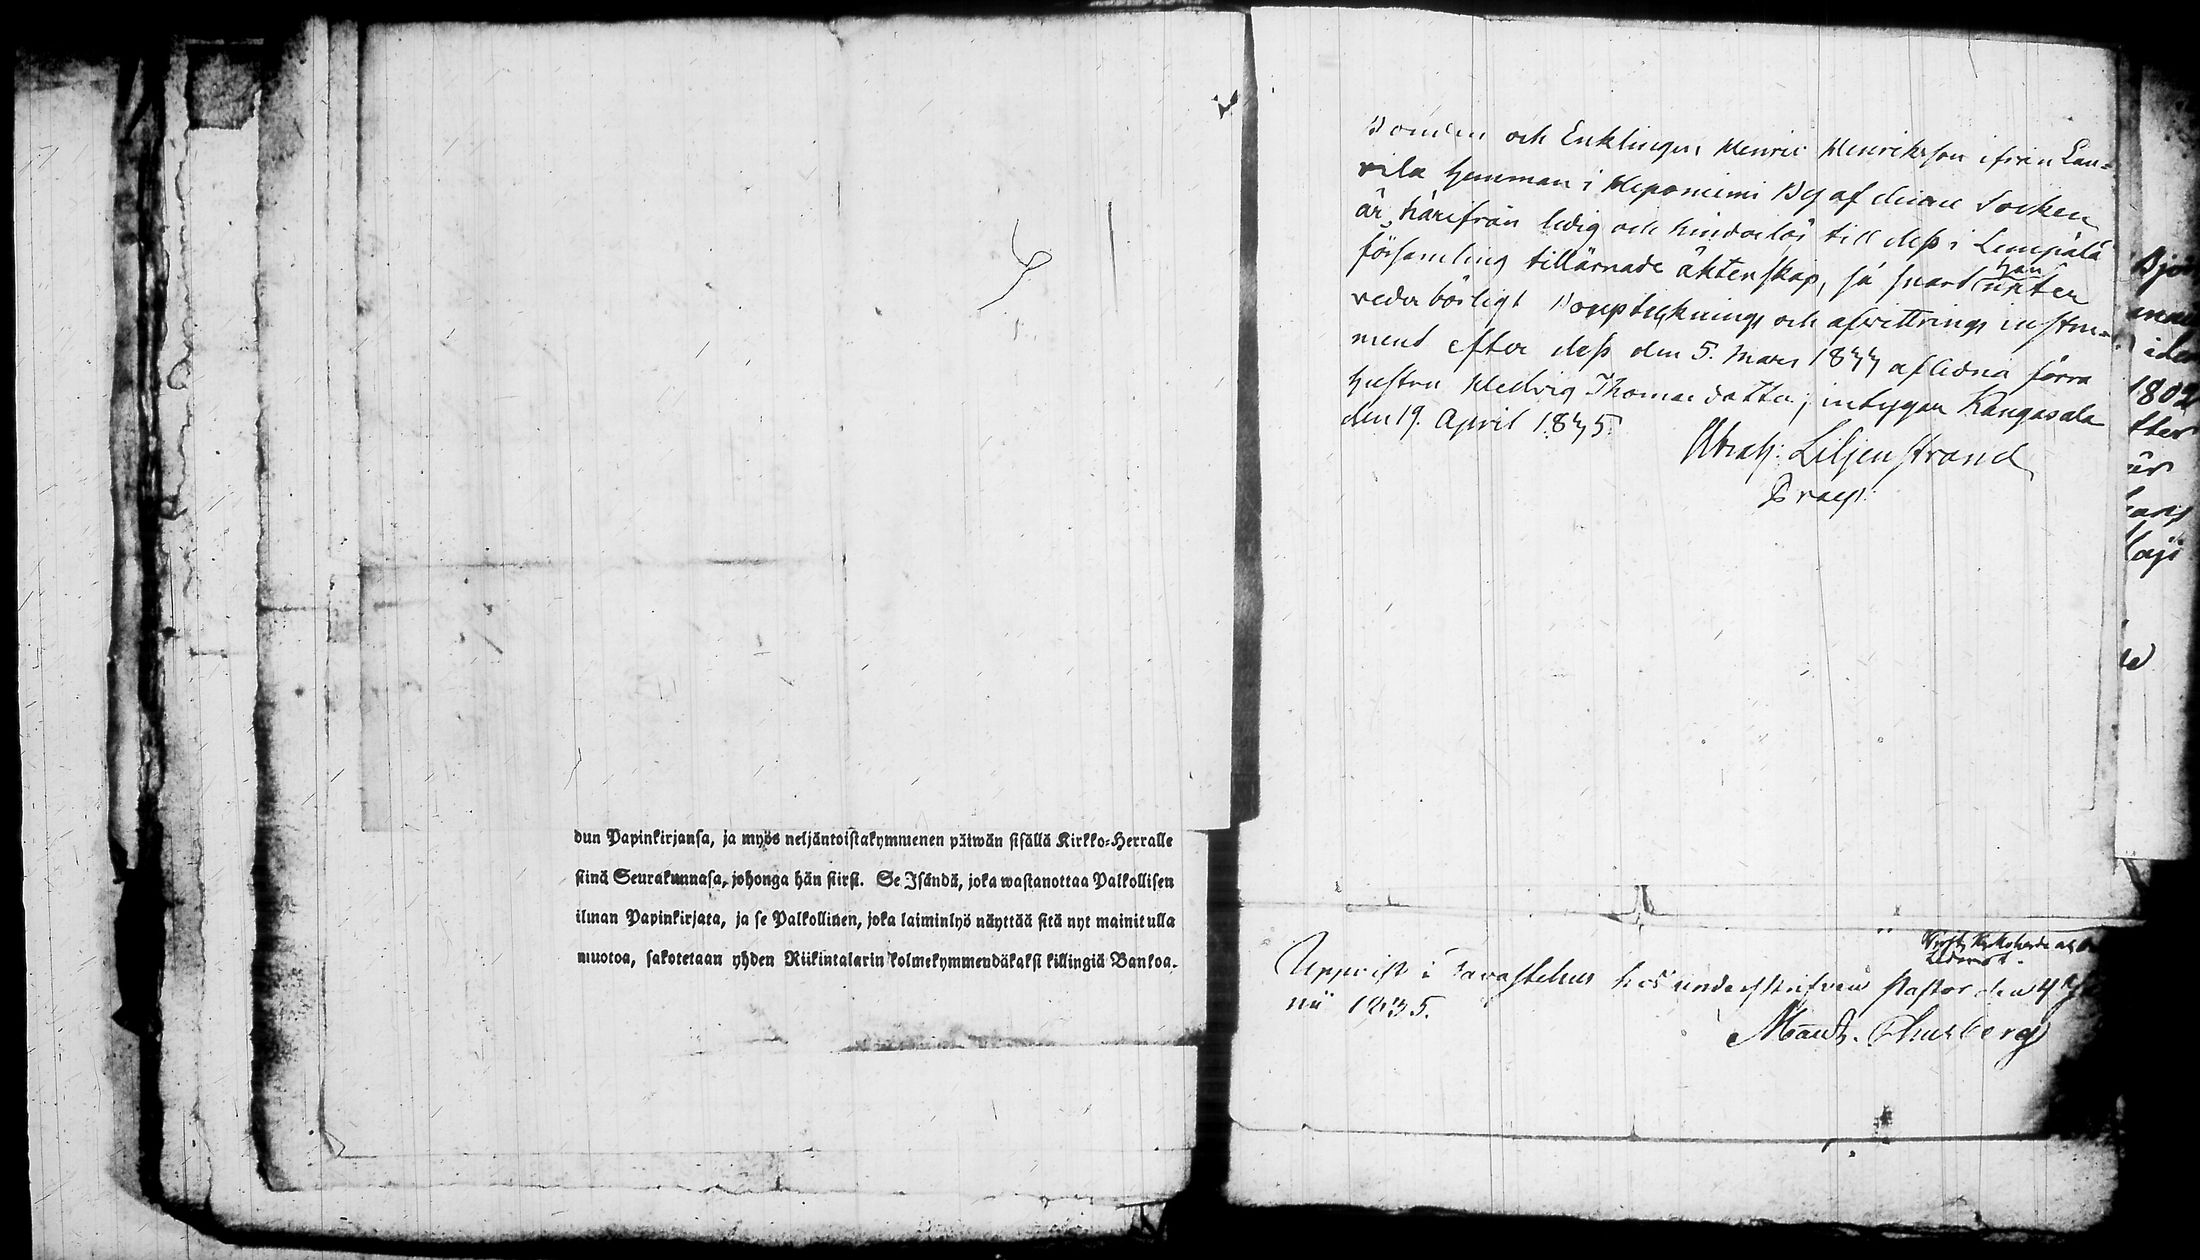 dun Papinkirjansa, ja myös neljäntoistakymmenen päiwän sisällä Kirkko-Herralle
siinä Seurakunnasa, johonga hän siirsi. Se Isändä, joka wastanottaa Palkollisen
ilman Papinkirjata, ja se Palkollinen, joka laiminlyö näyttää sitä nyt mainitulla
muotoa, sakotetaan yhden Riikintalarin kolmekymmendäkaksi killingiä Bankoa.
Bonden och Enklingen Henric Henriksson ifrån Lau-
rila hemman i Heponiemi By af denna Socken
är härifrån ledig och hinderlös till dess i Lempälä
församling tillärnade äktenskap, så snart han
vederbörligt Bouppteknings och afvittrings instru-
ment efter dess den 5. Mars 1844 aflidna förra
hustru Hedvig Thomasdotter; intygar Kangasala
den 19. April 1845.
Abrah: Liljenstrand
Prost
Uppvist i Tavastehus hos underskrifven Pastor den 4
nii 1835.
1802